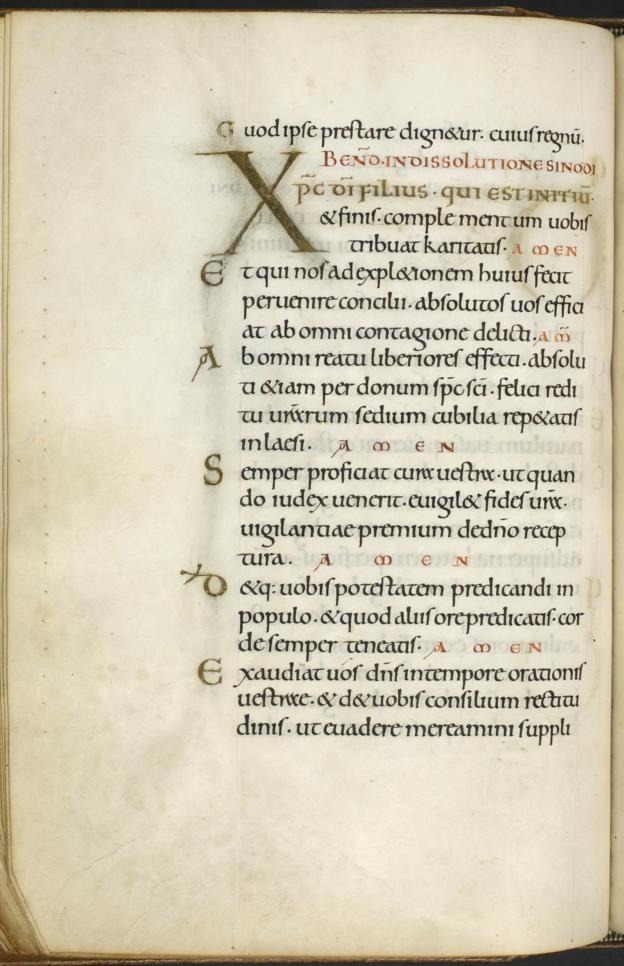 Quod ipse prestare dign&ur. cuius regnū.
BEÑD. IN DISSOLUTIONE SINODI
XP̄C D̄I FILIUS. QUI EST INITIŪ.
& finis. complementum uobis
tribuat karitatis. AMEN
Et qui nos ad expl&ionem huius fecit
peruenire concilii. absolutos uos effici
at ab omni contagione delicti. AM̄
Ab omni reatu liberiores effecti. absolu
ti &iam per donum sp̄c sc̄i. felici redi
tu ur̄arum sedium cubilia rep&atis
inlaesi. AMEN
Semper proficiat cura uestra. ut quan
do iudex uenerit. euigil& fides ur̄a.
uigilantiae premium de dn̄o recep
tura. AMEN
D&q: uobis potestatem predicandi in
populo. & quod aliis ore predicatis. cor
de semper teneatis. AMEN
Exaudiat uos dn̄s in tempore orationis
uestrae. & d& uobis consilium rectitu
dinis. ut euadere mereamini suppli